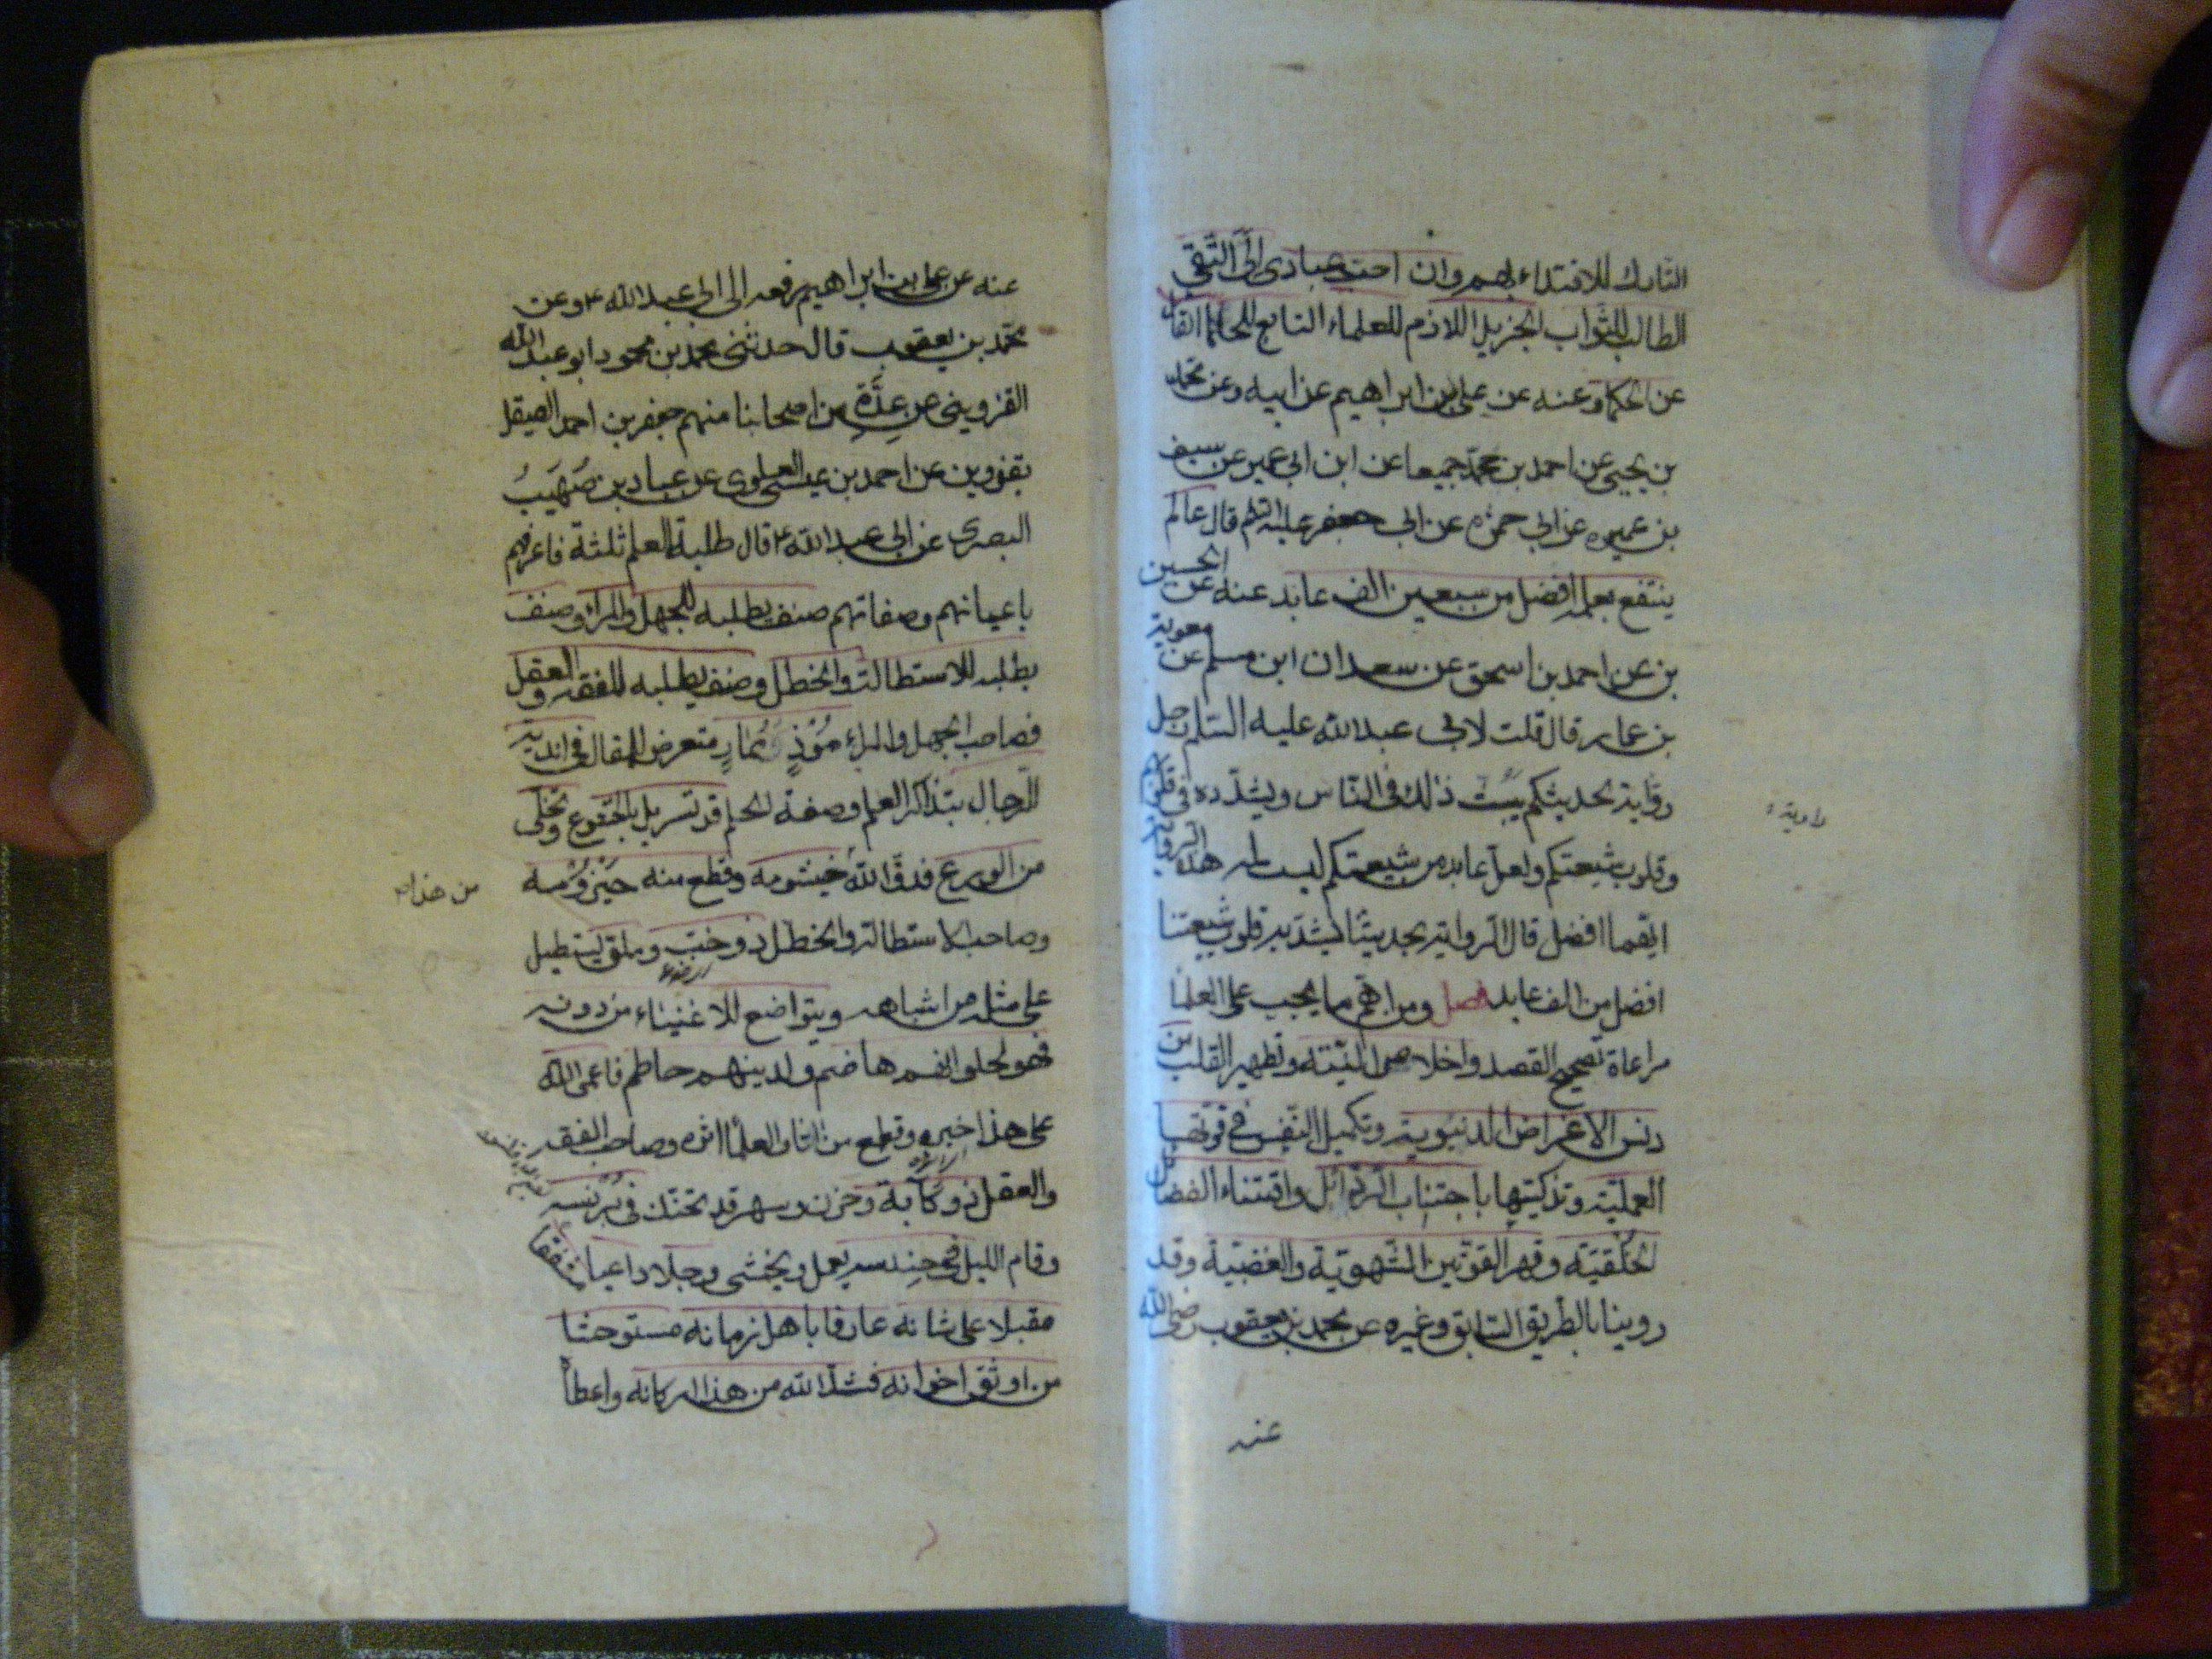 التارك للاقتداء بهم وان احب عبادى الىّ التّقى
الطالب للثّواب الجزيل اللازم للعلماء التابع للحلماء القابل
عن الحكماء وعنه عن على بن ابراهيم عن ابيه وعن محمد
بن يحيى عن احمد بن محمّد جميعا عن ابن ابى عمير عن سيف
بن عميره عن ابى حمزه عن ابى جعفر عليه السّلم قال عالم
ينتفع بعلمه افضل من سبعين الف عابد عنه عن الحسين
بن عن احمد بن اسحق عن سعدان ابن مسلم عن معوية
بن عمار قال قلت لابى عبد الله عليه السّلم رجل
روّاية لحديثكم يبثّ ذلك فى النّاس ويشدّده فى قلوبهم
وقلوب شيعتكم ولعلّ عابد من شيعتكم ليست له هذه الرواية
ايّهما افضل قال الرواية لحديثنا يشدّ به قلوب شيعتنا
افضل من الف عابد فصل ومن اهمّ ما يجب على العلماء
مراعاة تصحيح القصد واخلاص النيّته وتطهير القلب من
دنس الاغراض الدنيوية وتكميل النّفس فى قوّتها
العمليّة وتزكيتها باجتناب الرّذائل واقتناء الفضائل
الخلقيّة وقهر القوّتين الشّهويّة والغضبيّة وقد
روينا بالطريق السّابق وغيره عن محمد بن يعقوب رضى الله
عنه
راوية
عنه عن على بن ابراهيم رفعه الى ابى عبد الله ع وعن
محمّد بن يعقوب قال حدثنى محمد بن محمود ابو عبد الله
القزوينى عن عِدَّةٍ من اصحابنا منهم جعفر بن احمد الصيقل
بقزوين عن احمد بن عيسى العلوى عن عباد بن صُهَيبُ
البصرى عن ابى عبد الله ع قال طلبة العلم ثلثة فاعرفهم
باعيانهم وصفاتهم صنف يطلبه للجهل والمراء وصنف
يطلبه للاستطالة والخطل وصنف يطلبه للفقه والعقل
فصاحب الجهل والمراء مُوْذٍ مُمارٍ متعرض للمقال فى اندية
الرّجال بتذاكر العلم وصفة الحلم قد تسربل بالخشوع وتخلّى
من الورع فدقّ الله خيشومه وقطع منه حَيْزُوْمه
من هذا
وصاحب الاستطالة والخطل ذو خبّ وملق يستطيل
على مثله من اشباهه ويتواضع للاغنياء من دونه
فهو لحلوائهم هاضم ولدينهم حاطم فاعمى الله
على هذا خبره وقطع من اثار العلماء اثره وصاحب الفقه
والعقل ذو كآبة وحزن وسهر قد تحنّك فى بُرْنُسه
وقام الليل فى حِندسه يعمل ويخشى وجلا داعيا مشفقا
مقبلا على شانه عارفا باهل زمانه مستوحشا
من اوثق اخوانه فشدّ الله من هذا اركانه واعطاه